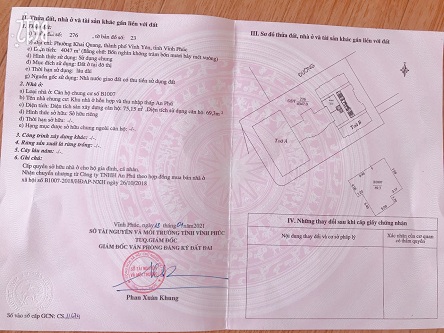 II. Thửa đất, nhà ở và tài sản khác gắn liền với đất
1. Thửa đất:
a) Thửa đất số: 276 tờ bản đồ số: 23
b) Địa chỉ: Phường Khai Quang, thành phố Vĩnh Yên, tỉnh Vĩnh Phúc
c) Diện tích: 4047 m² (Bằng chữ: Bốn nghìn không trăm bốn mươi bảy mét vuông)
d) Hình thức sử dụng: Sử dụng chung
đ) Mục đích sử dụng: Đất ở tại đô thị
e) Thời hạn sử dụng: lâu dài
g) Nguồn gốc sử dụng: Nhà nước giao đất có thu tiền sử dụng đất
2. Nhà ở:
a) Loại nhà ở: Căn hộ chung cư số B1007
b) Tên nhà chung cư: Khu nhà ở hỗn hợp và thu nhập thấp An Phú
c) Diện tích sàn xây dựng: 75,15 m²
d) Hình thức sở hữu: Sở hữu riêng
đ) Thời hạn sở hữu: -/-
e) Hạng mục được sở hữu chung ngoài căn hộ: -/-
3. Công trình xây dựng khác: -/-
4. Rừng sản xuất là rừng trồng: -/-
5. Cây lâu năm: -/-
6. Ghi chú:
Cấp quyền sở hữu nhà ở cho hộ gia đình, cá nhân.
Nhận chuyển nhượng từ Công ty TNHH An Phú theo hợp đồng mua bán nhà ở
xã hội số B1007-2018/HĐAP-NXH ngày 26/10/2018
Vĩnh Phúc, ngày tháng năm 2021
SỞ TÀI NGUYÊN VÀ MÔI TRƯỜNG TỈNH VĨNH PHÚC
TUQ.GIÁM ĐỐC
GIÁM ĐỐC VĂN PHÒNG ĐĂNG KÝ ĐẤT ĐAI
Phan Xuân Khang
Số vào sổ cấp GCN: CS
III. Sơ đồ thửa đất, nhà ở và tài sản khác gắn liền với đất
ĐƯỜNG
Toà A
Toà B
IV. Những thay đổi sau khi cấp giấy chứng nhận
Nội dung thay đổi và cơ sở pháp lý
Xác nhận của cơ quan
có thẩm quyền